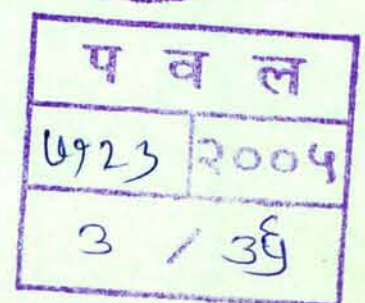 प व ल
७१२३ २००५
३ / ३६